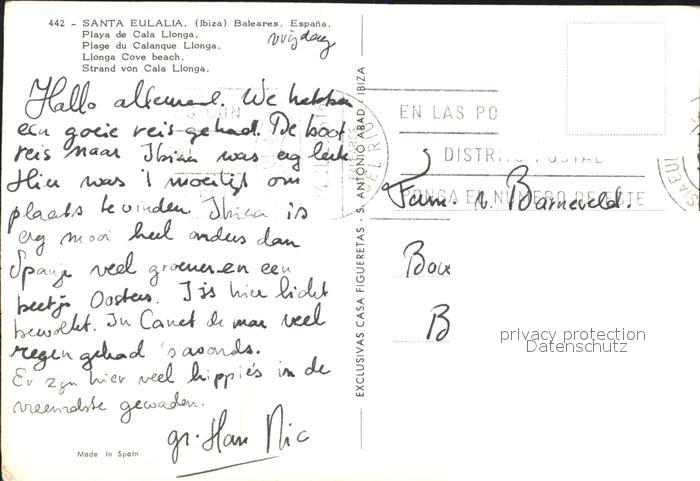 442 - SANTA EULALIA. (Ibiza) Baleares. España.
Playa de Cala Llonga.
Plage du Calanque Llonga.
Llonga Cove beach.
Strand von Cala Llonga.
vrijdag
Hallo allemaal. We hebben
een goeie reis gehad. De boot
reis naar Ibiza was erg leuk.
Hier was 't moeilijk om
plaats te vinden. Ibiza is
erg mooi heel anders dan
Spanje veel groener en een
beetje Oosters. 't Is hier licht
bewolkt. In Canet de mar veel
regen gehad 's avonds.
Er zijn hier veel hippies in de
vreemdste gewaden.
gr. Han Nic
Made in Spain
EXCLUSIVAS CASA FIGUERETAS - S. ANTONIO ABAD - IBIZA
EN LAS PO
DISTRITO POSTAL
PONGA EL NUMERO DE ESTE
Fam. v. Barneveld.
Bou
B
privacy protection
Datenschutz